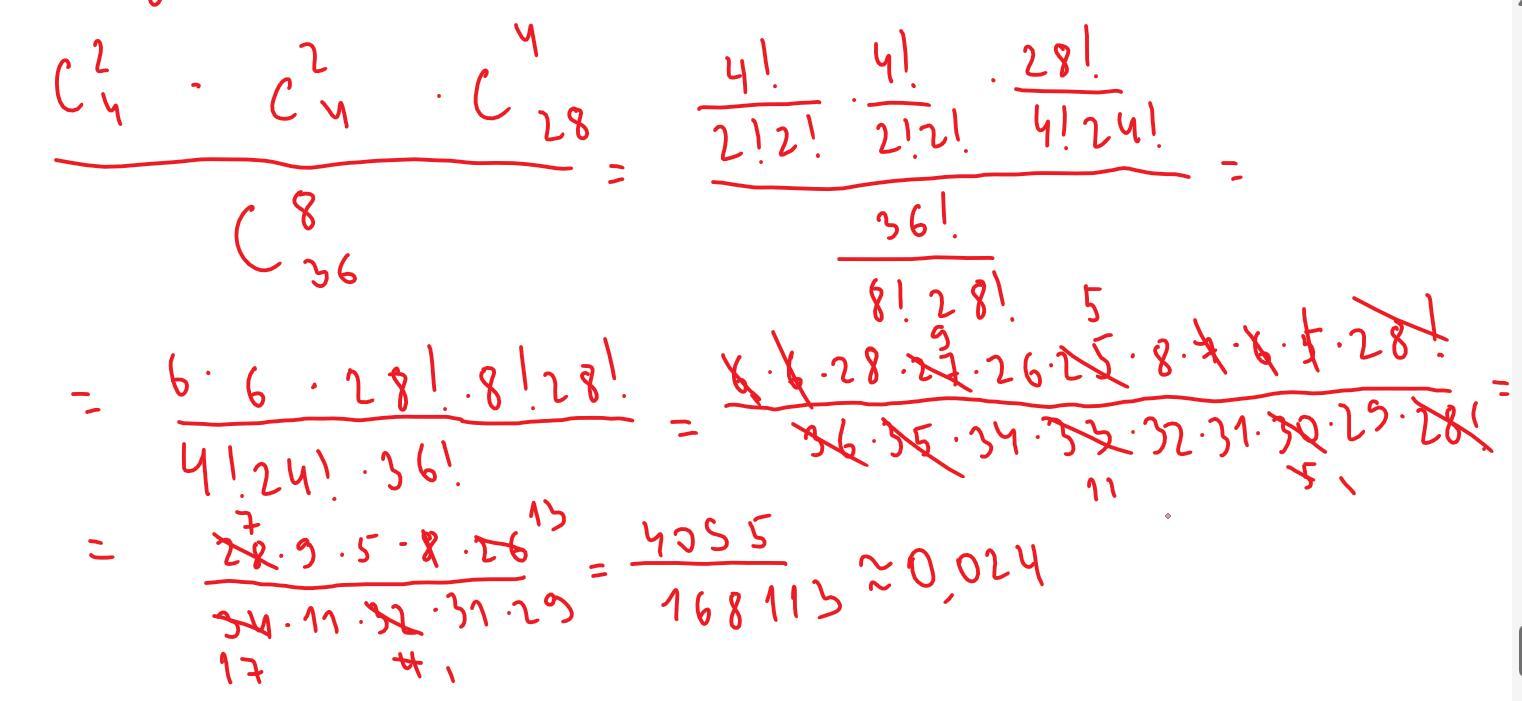 C²₄ · C²₄ · C⁴₂₈ / C⁸₃₆ = (4!/(2!2!) · 4!/(2!2!) · 28!/(4!24!)) / (36!/(8!28!)) =
= (6 · 6 · 28! · 8! 28!) / (4! 24! · 36!) = (6 · 6 · 28 · 27 · 26 · 25 · 8 · 7 · 6 · 5 · 28!) / (36 · 35 · 34 · 33 · 32 · 31 · 30 · 29 · 28!) =
9 5
11 5
= (28 · 9 · 5 · 8 · 26) / (34 · 11 · 32 · 31 · 29) = 4095 / 168113 ≈ 0,024
7 13
17 4